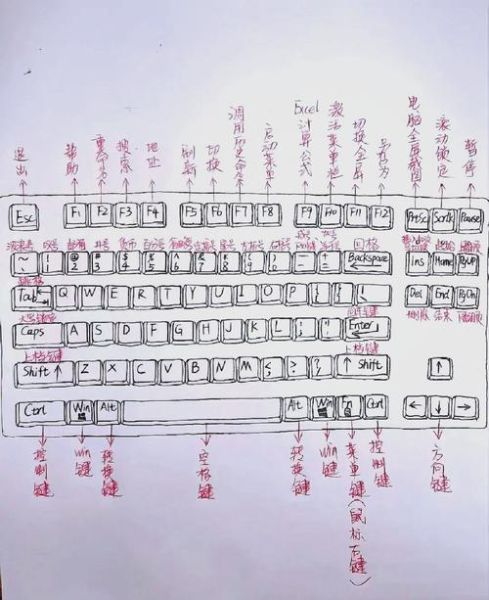 退出 帮助 重命名 搜索 地址 刷新 切换 调用历史命令 启动菜单 Excel计算公式 激活菜单栏 切换全屏 另存为 电脑全屏截图 滚动锁定 暂停
Esc F1 F2 F3 F4 F5 F6 F7 F8 F9 F10 F11 F12 PrtSc ScrLk Pause
井号 货币 百分号 星号 左括号 右括号 退格
~ ` ! 1 @ 2 # 3 $ 4 % 5 ^ 6 & 7 * 8 ( 9 ) 0 - + = Backspace Ins Home PgUp
Tab Q W E R T Y U I O P { [ } ] Del End PgDn
大写锁定 回车键 删除 结束
Caps A S D F G H J K L : ; " ' Enter
上档键 上档键
Shift ↑ Z X C V B N M < , > . ? / ↑ Shift ↑
Ctrl Win Alt Alt Win Fn Ctrl ← ↓ →
控制键 win键 转换键 空格键 转换键 win键 菜单键(鼠标右键) 控制键 方向键